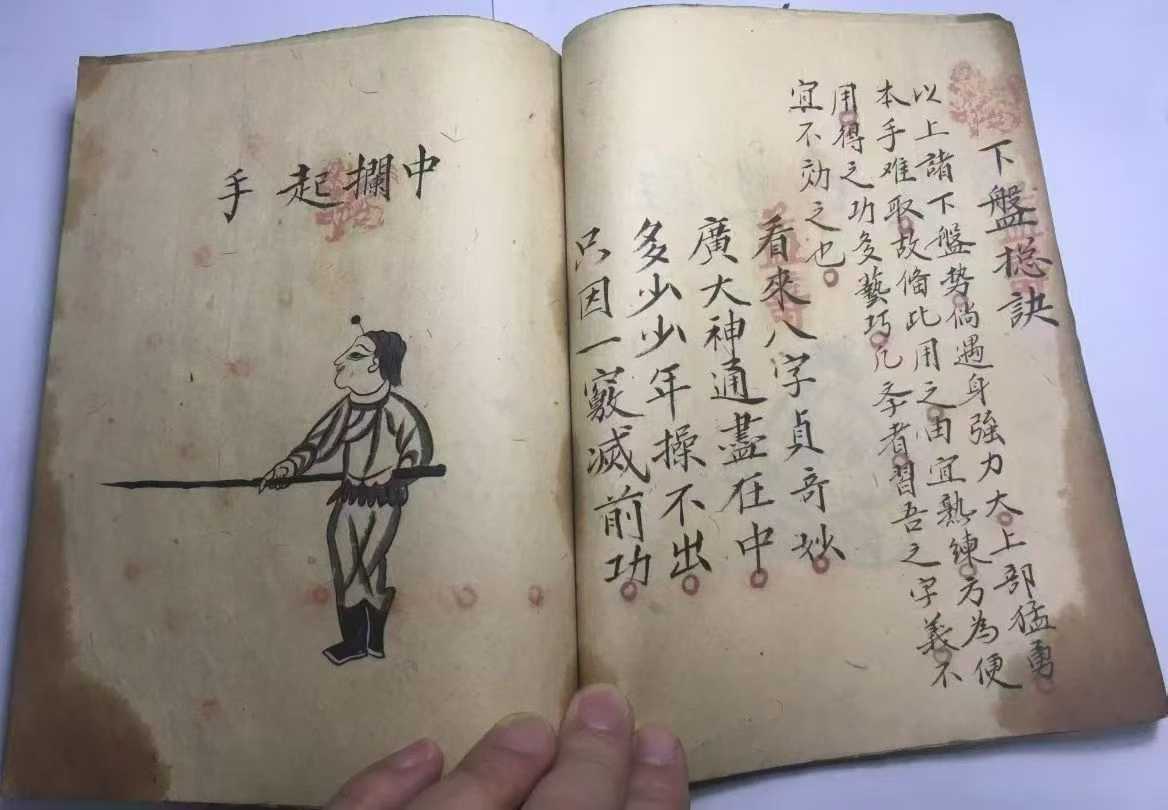 下盤捴訣
以上諸下盤势倘遇身強力大上部猛勇
本手难取故俻此用之由宜熟練方為便
用得之功多藝巧几斈者習吾之字義不
宜不効之也
看來八字貞奇妙
廣大神通盡在中
多少少年操不出
只因一竅滅前功
中攔起手